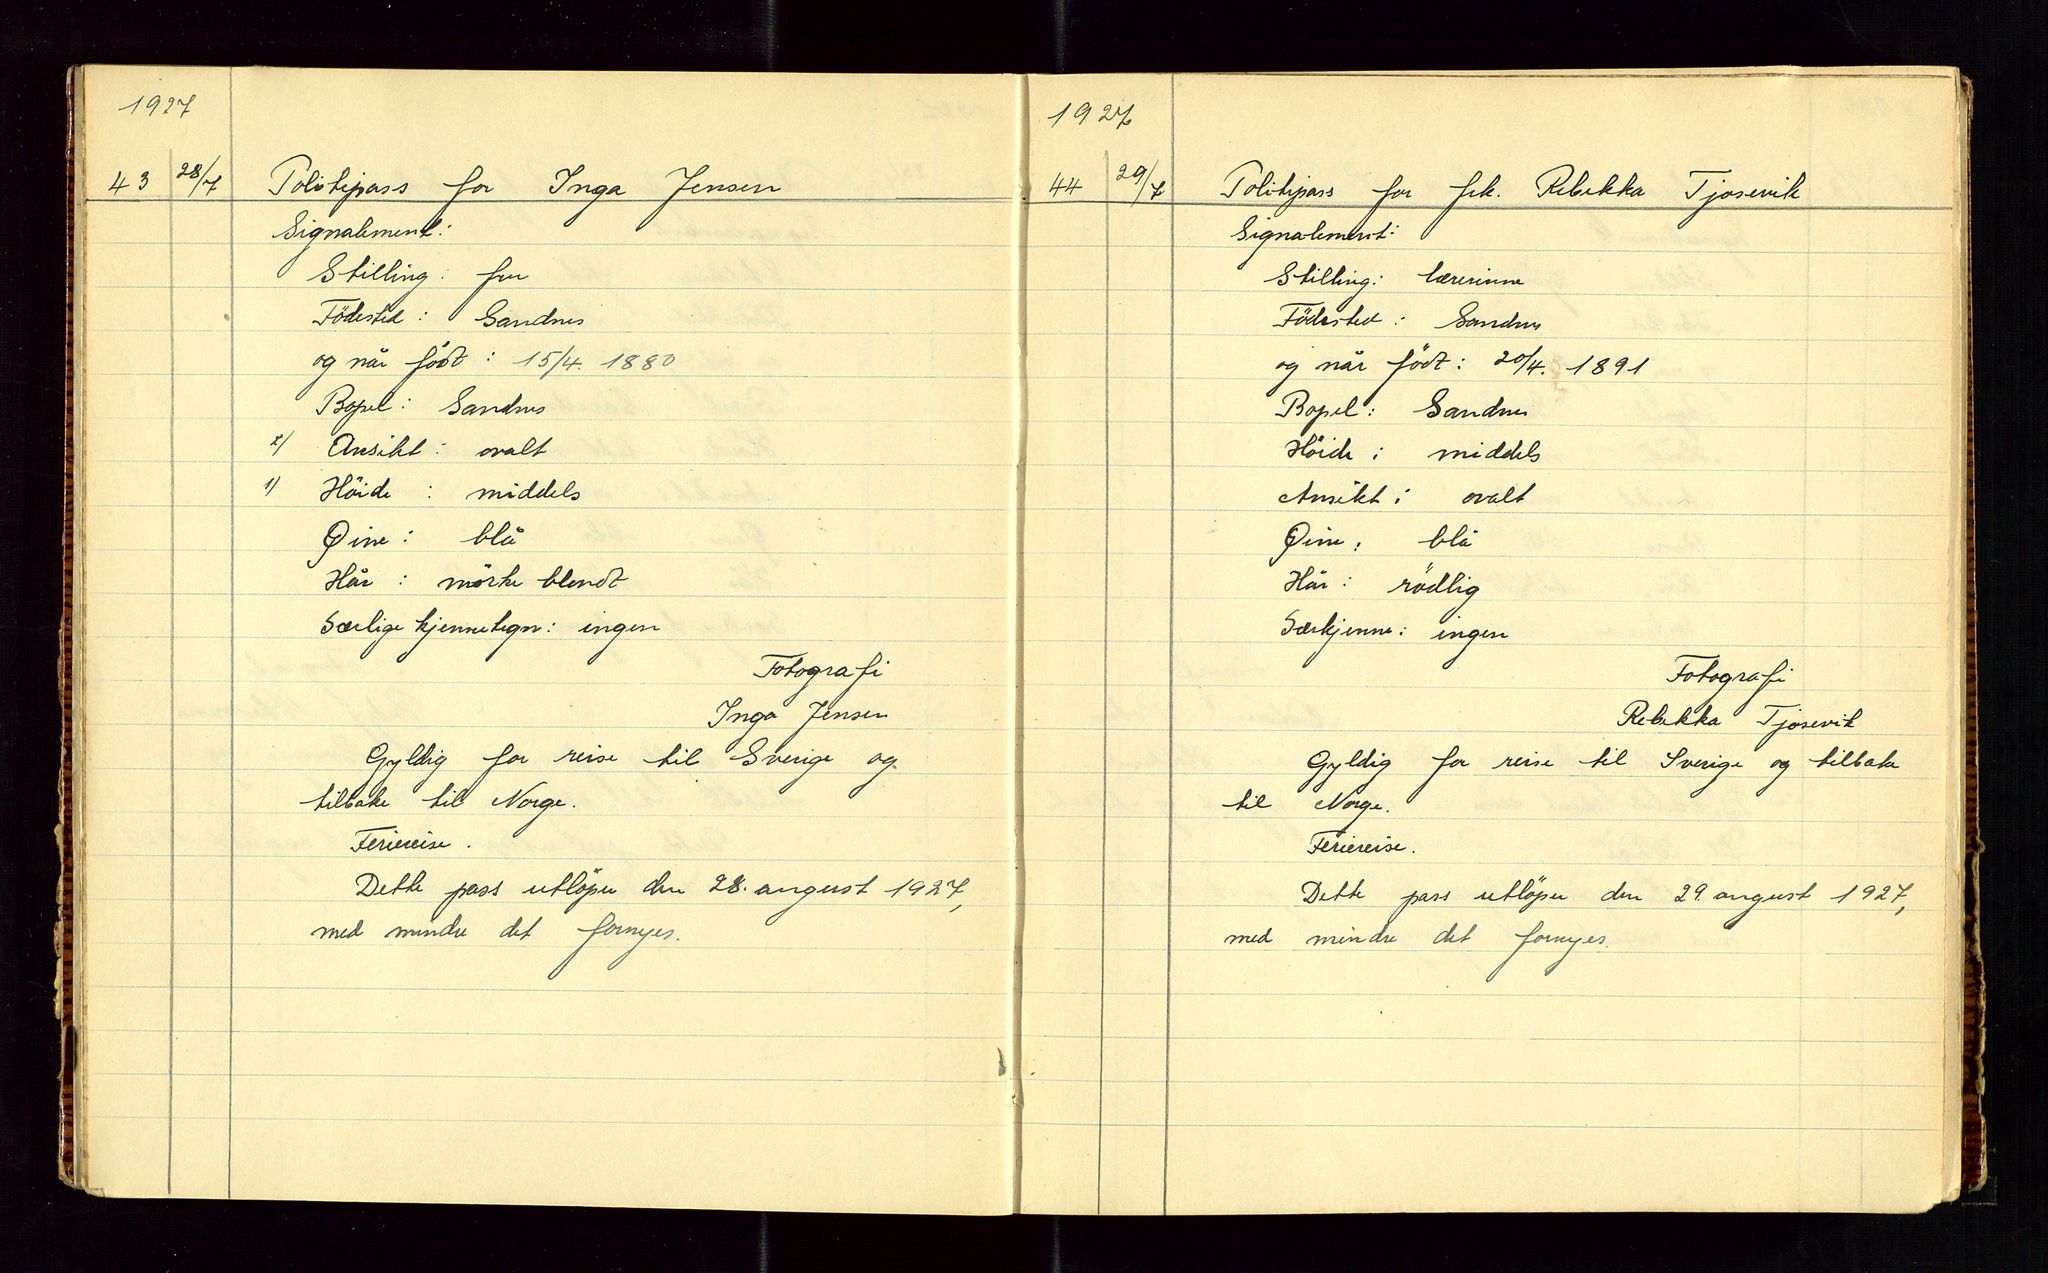 1927
43 28/7 Politipass for Inga Jensen
Signalement:
Stilling: fru
Födested: Sandnes
og når födt: 15/4. 1880
Bopel: Sandnes
2) Ansikt: ovalt
1) Höide: middels
Øine: blå
Hår: mörke blondt
Særlige kjennetegn: ingen
Fotografi
Inga Jensen
Gyldig for reise til Sverige og
tilbake til Norge.
Feriereise.
Dette pass utlöper den 28. august 1927,
med mindre det fornyes.
1927
44 29/7 Politipass for frk. Rebekka Tjosevik
Signalement:
Stilling: lærerinne
Födested: Sandnes
og når födt: 20/4. 1891
Bopel: Sandnes
Höide: middels
Ansikt: ovalt
Øine: blå
Hår: rödlig
Særkjenne: ingen
Fotografi
Rebekka Tjosevik
Gyldig for reise til Sverige og tilbake
til Norge.
Feriereise.
Dette pass utlöper den 29. august 1927,
med mindre det fornyes.